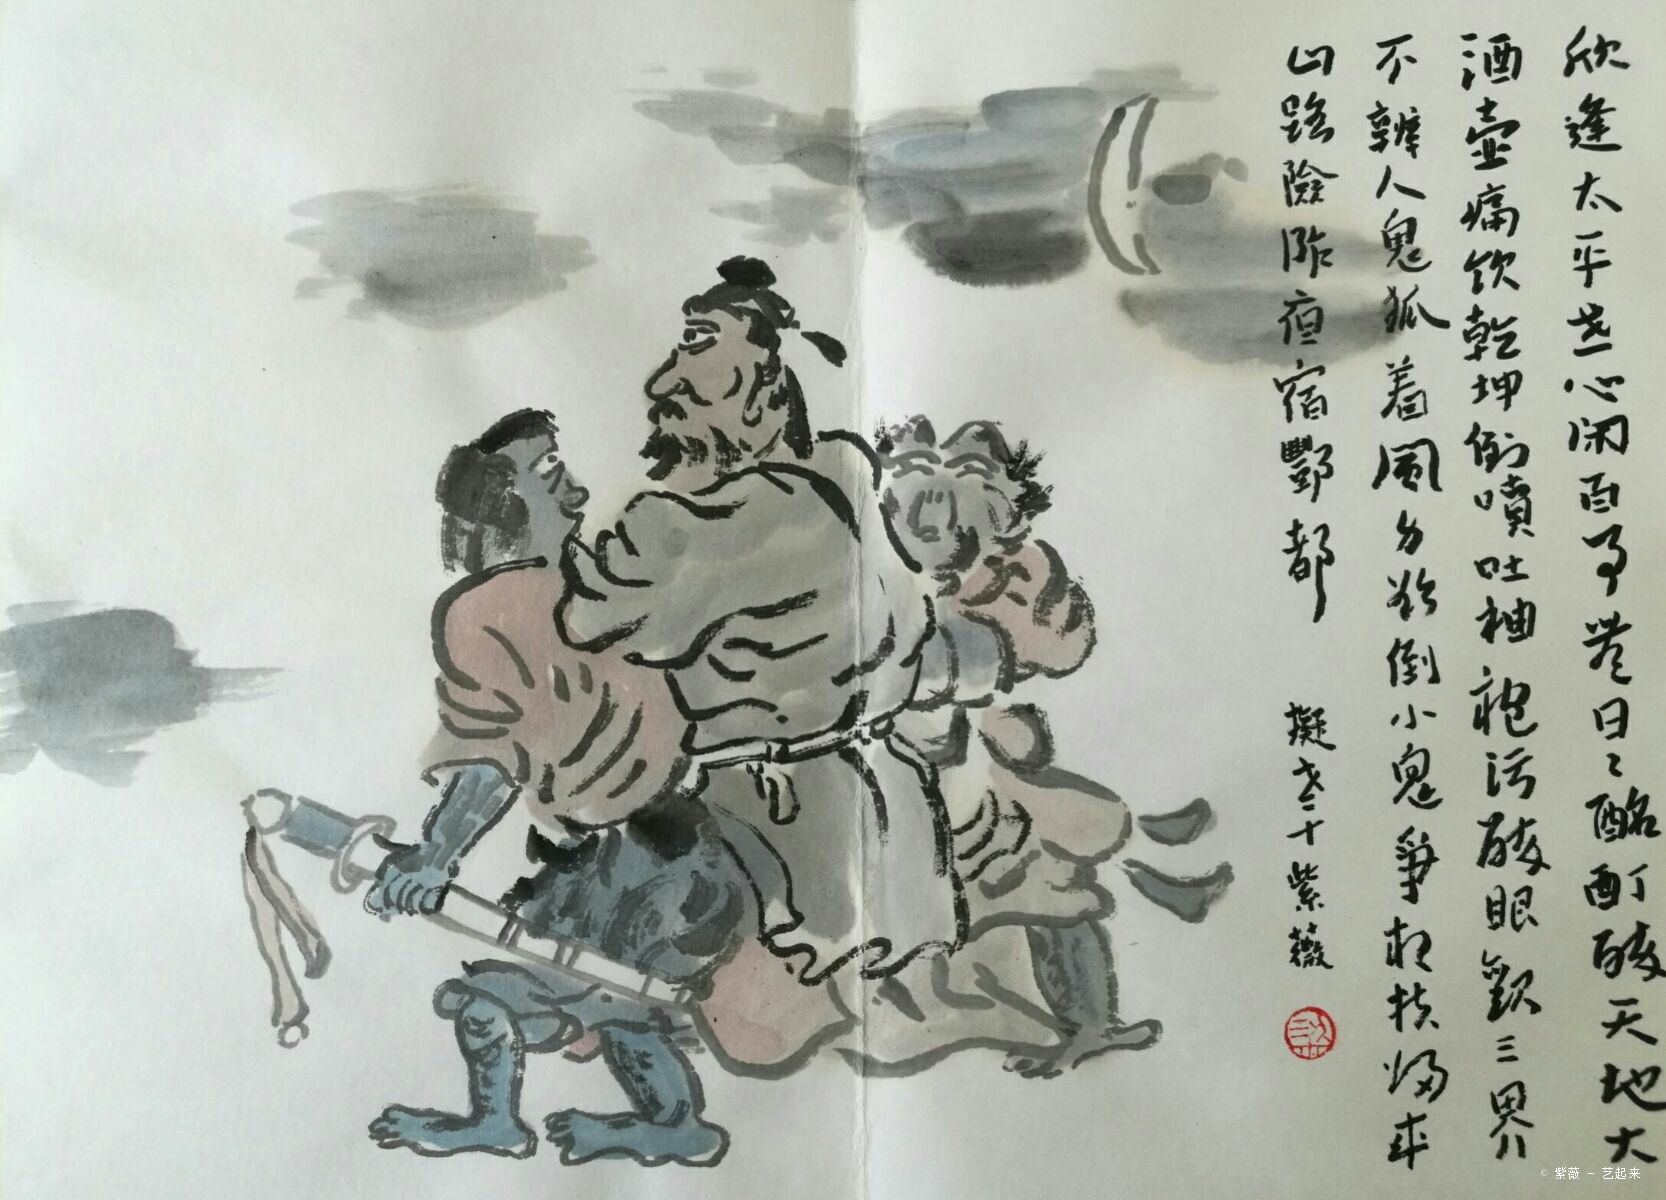 欣逢太平世心闲百事苍日〻酩酊醉天地大
酒壶痛饮乾坤倒喷吐袖袍污醉眼观三界
不辨人鬼狐着风身欲倒小鬼争相扶归来
山路险阼夜宿酆都
拟老十紫薇
© 紫薇 - 艺起来